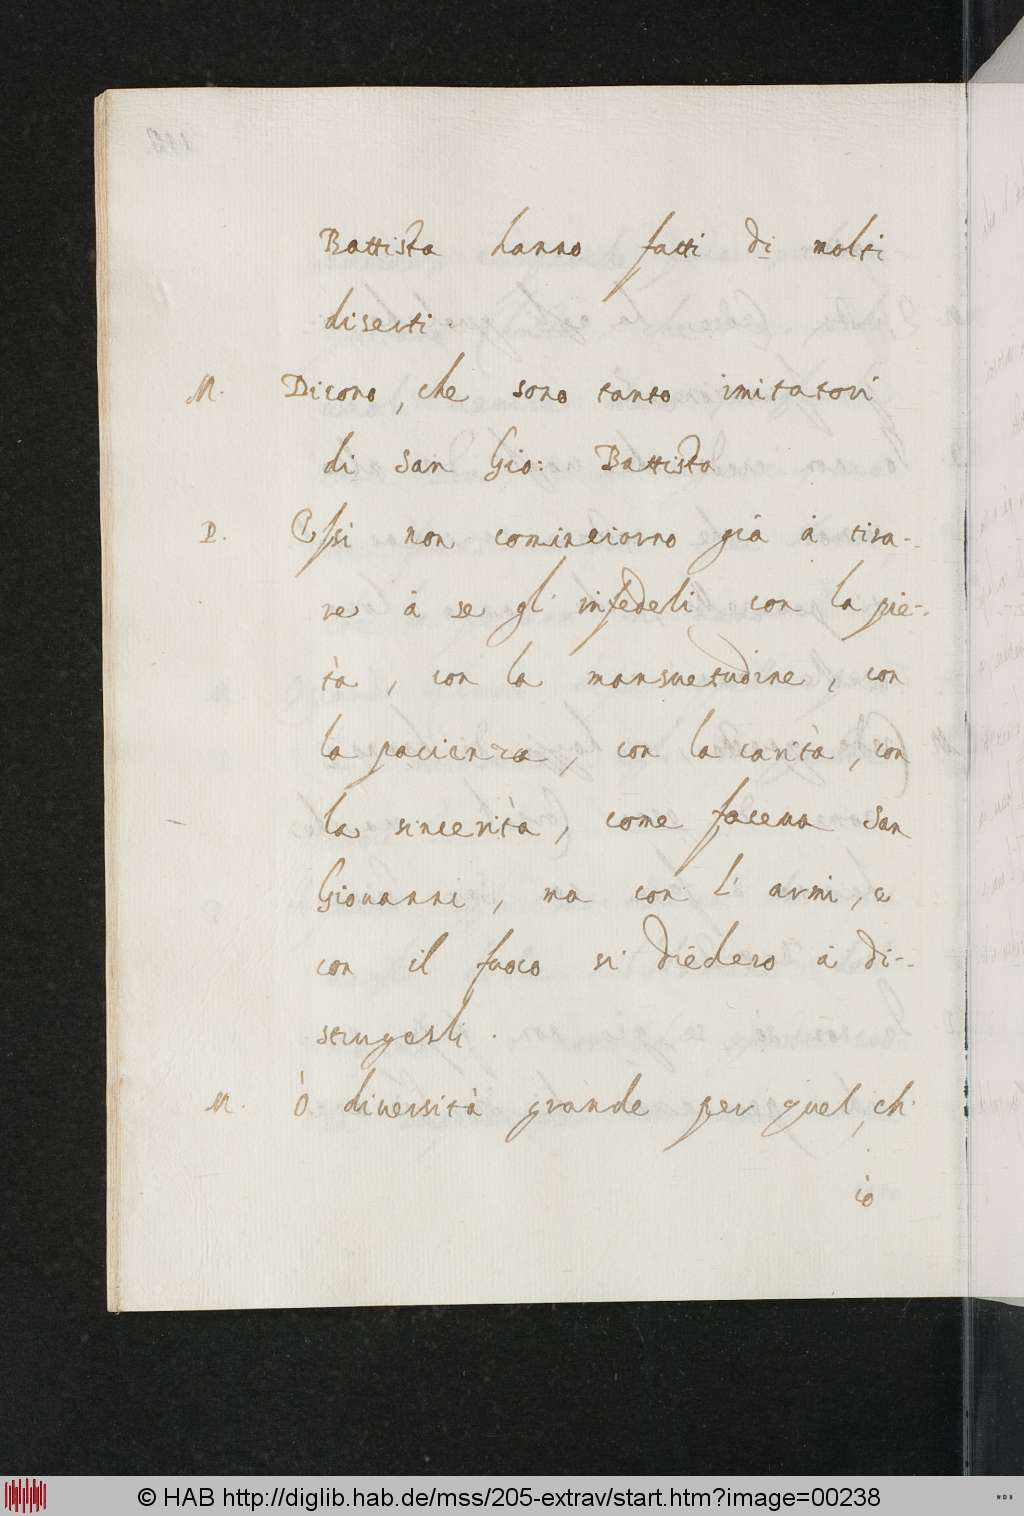 Battista hanno fatti di molti
diserti.
M. Dicono, che sono tanto imitatori
di San Gio: Battista
P. Essi non cominciorno già à tira-
re à se gl' infedeli con la pie-
tà, con la mansuetudine, con
la pacienza, con la carità, con
la sincerità, come faceua San
Giouanni, ma con l' armi, e
con il fuoco si diedero à di-
strugerli.
M. Ò diuersità grande per quel, ch'
io
© HAB http://diglib.hab.de/mss/205-extrav/start.htm?image=00238